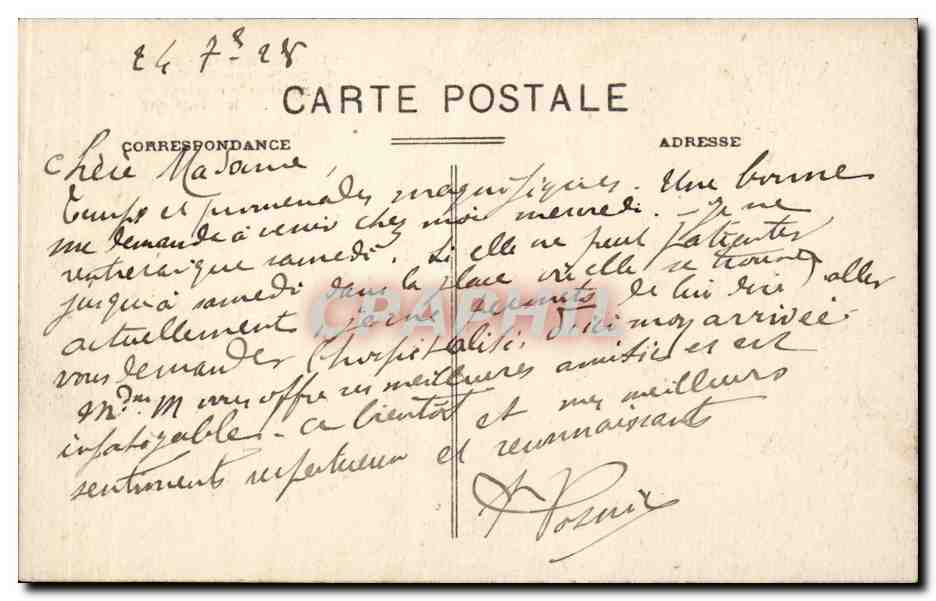 24 7re 28
CARTE POSTALE
CORRESPONDANCE
ADRESSE
Chère Madame,
Temps et promenades magnifiques. Une bonne
me demande à venir chez moi mercredi. Je ne
rentrerai que samedi. Si elle ne peut patienter
jusqu'à samedi dans la place où elle se trouve
actuellement, je me permets de lui dire, aller
vous demander l'hospitalité d'ici mon arrivée.
Mdme M vous offre ses meilleures amitiés et est
infatigable. A bientôt et mes meilleurs
sentiments respectueux et reconnaissants
CPARPHIL